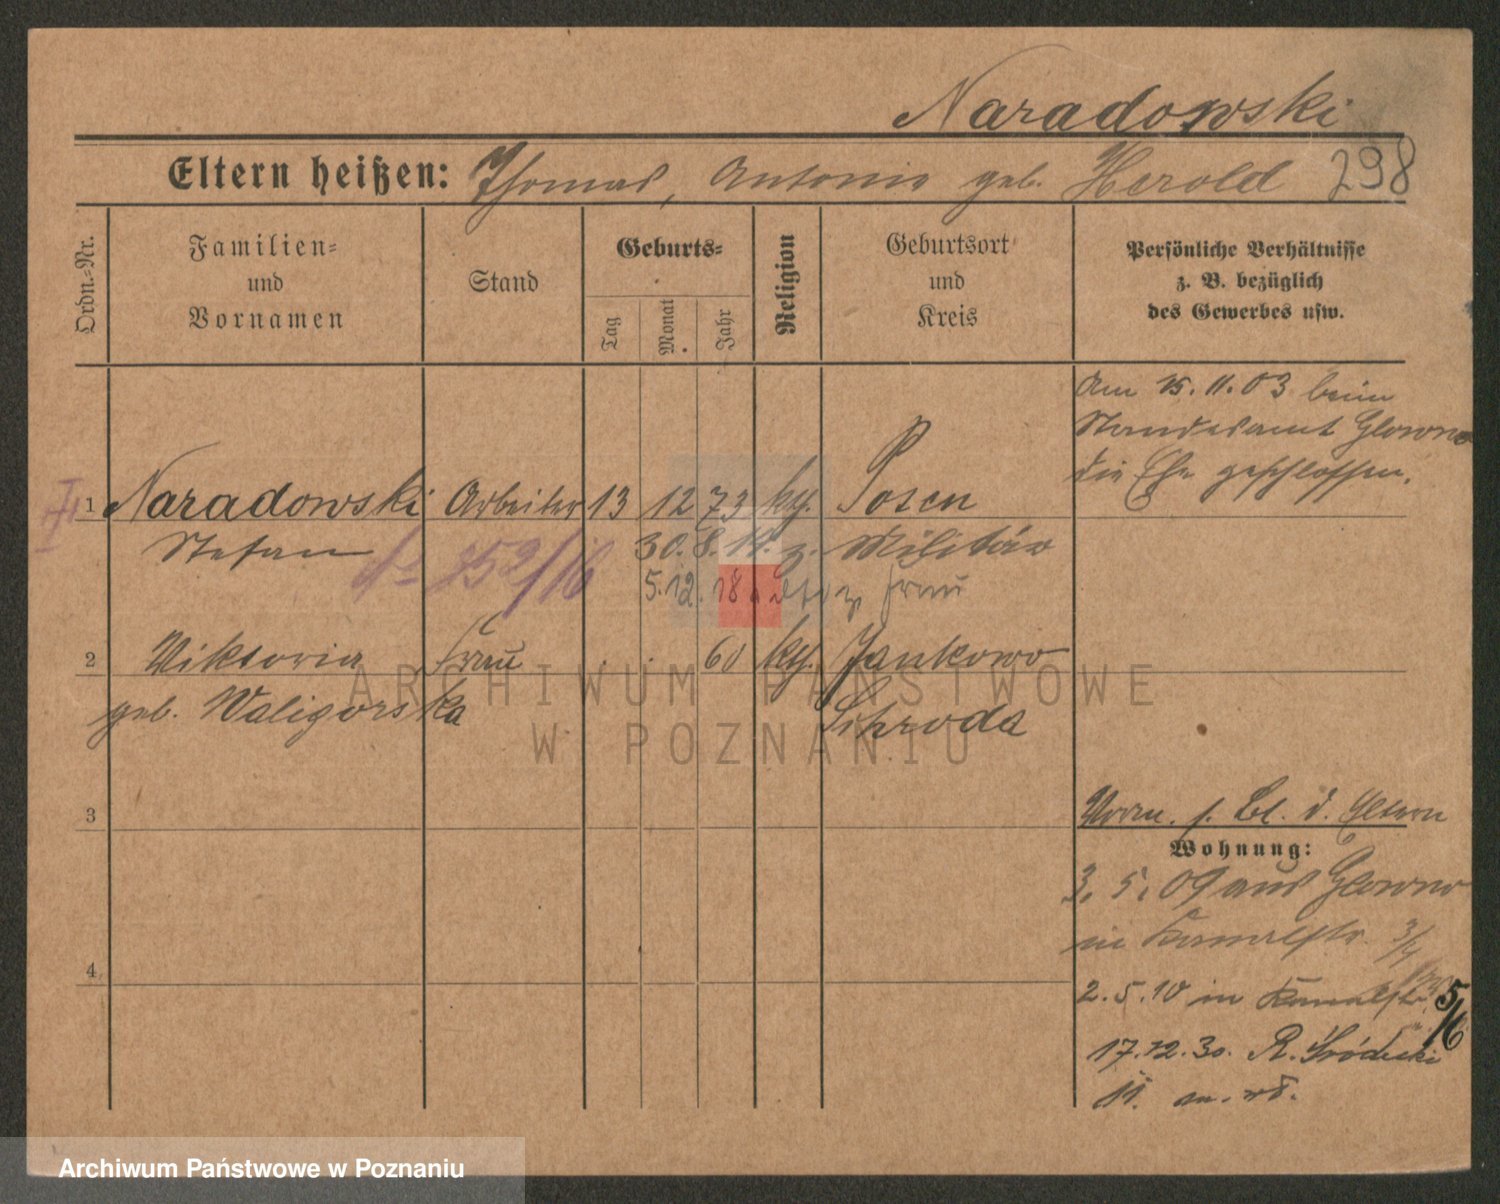 Naradowski
Eltern heißen: Thomas, Antonie geb. Herold 298
Ordn.=Nr.
Familien=
und
Vornamen
Stand
Geburts=
Tag
Monat
Jahr
Religion
Geburtsort
und
Kreis
Persönliche Verhältnisse
z. B. bezüglich
des Gewerbes usw.
Am 15. 11. 03 beim
Standesamt Glowno
die Ehe geschlossen.
1 Naradowski Arbeiter 13 12 73 kth. Posen
Stefan 30. 8. 14. z. Militär
752/16
5. 12. 18 Frau
2 Viktoria Frau 60 kth. Jankowo
geb. Waligorska Schroda
3
Vorm. s. Bl. d. Eltern
Wohnung:
3. 5. 09 aus Glowno
in Kanalstr. 3/4
4
2. 5. 10 in Kanalstr. 5/6
17. 12. 30. R. Śródecki
11.
ARCHIWUM PAŃSTWOWE
W POZNANIU
Archiwum Państwowe w Poznaniu